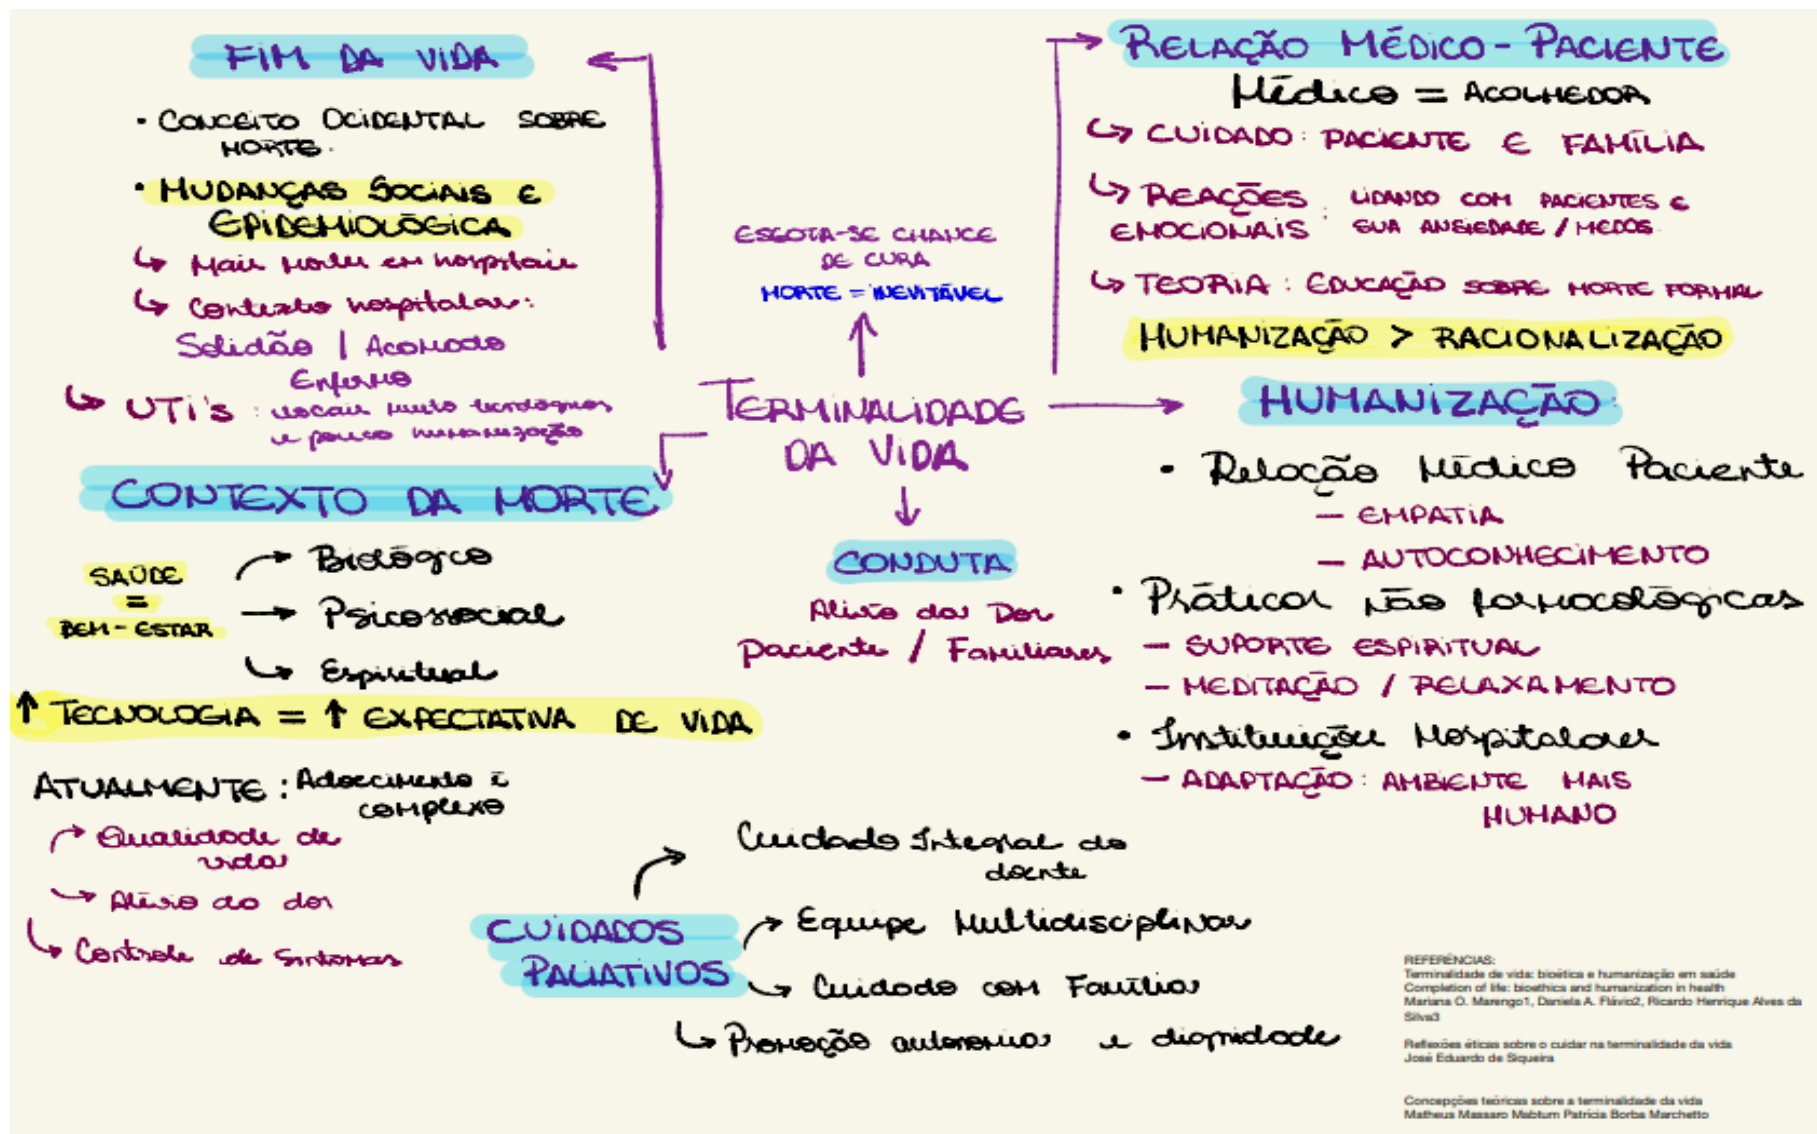 FIM DA VIDA
• CONCEITO OCIDENTAL SOBRE
MORTE.
• MUDANÇAS SOCIAIS E
EPIDEMIOLÓGICA
↳ Mais mortes em hospitais
↳ Contexto hospitalar:
Solidão | ACOMODO
Enfermo
↳ UTI's : locais muito tecnológicos
e pouco humanização
CONTEXTO DA MORTE
SAÚDE
=
BEM-ESTAR
→ Biológico
→ Psicossocial
↳ Espiritual
↑ TECNOLOGIA = ↑ EXPECTATIVA DE VIDA
ATUALMENTE : Adoecimento é
complexo
→ Qualidade de
vida
↳ Alívio da dor
↳ Controle de Sintomas
ESGOTA-SE CHANCE
DE CURA
MORTE = INEVITÁVEL
TERMINALIDADE
DA VIDA
CONDUTA
Alívio da Dor
Paciente / Familiares
CUIDADOS
PALIATIVOS
Cuidado Integral do
doente
→ Equipe Multidisciplinar
↳ Cuidado com Família
↳ Promoção autonomia e dignidade
RELAÇÃO MÉDICO-PACIENTE
Médico = ACOLHEDOR
↳ CUIDADO: PACIENTE E FAMÍLIA
↳ REAÇÕES LIDANDO COM PACIENTES E
EMOCIONAIS : SUA ANSIEDADE / MEDOS
↳ TEORIA : EDUCAÇÃO SOBRE MORTE FORMAL
HUMANIZAÇÃO > RACIONALIZAÇÃO
HUMANIZAÇÃO:
• Relação Médico Paciente
— EMPATIA
— AUTOCONHECIMENTO
• Práticas não farmacológicas
— SUPORTE ESPIRITUAL
— MEDITAÇÃO / RELAXAMENTO
• Instituições Hospitalares
— ADAPTAÇÃO: AMBIENTE MAIS
HUMANO
REFERÊNCIAS:
Terminalidade de vida: bioética e humanização em saúde
Completion of life: bioethics and humanization in health
Mariana O. Marengo1, Daniela A. Flávio2, Ricardo Henrique Alves da
Silva3
Reflexões éticas sobre o cuidar na terminalidade da vida
José Eduardo de Siqueira
Concepções teóricas sobre a terminalidade da vida
Matheus Massaro Mabtum Patrícia Borba Marchetto